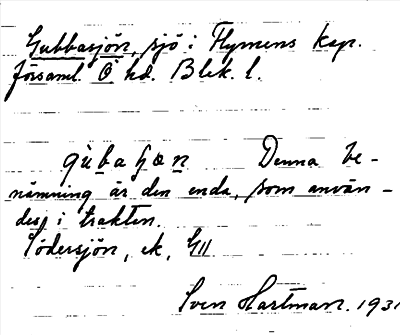 Gubbasjön, sjö i Flymens kap.
församl. Ö hd. Blek. l.
Denna be-
nämning är den enda, som använ-
des i trakten.
Södersjön, ek, GII
Sven Hartman. 1931